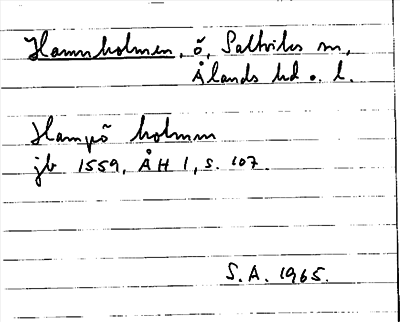 Hamnholmen, ö, Saltviks sn,
Ålands hd o. l.
Hampö holmen
jb 1559, ÅH 1, s. 107.
S.A. 1965.